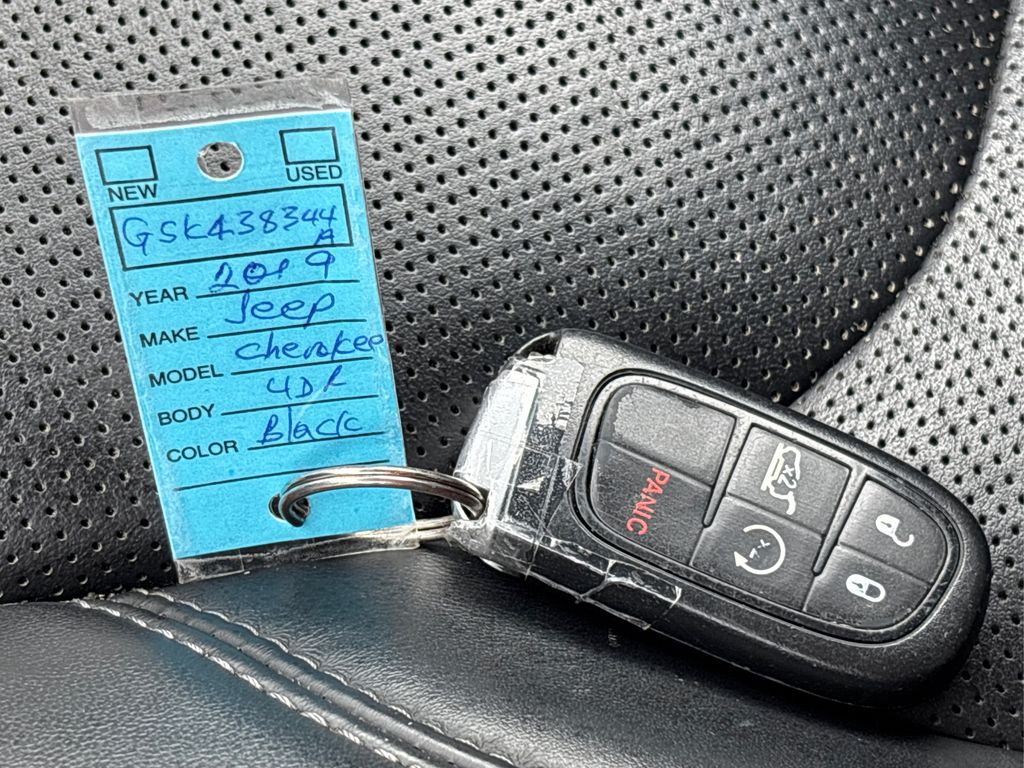 NEW USED
GSK438344
A
YEAR 2019
MAKE Jeep
MODEL Cherokee
BODY 4DR
COLOR Black
PANIC
x2
x2